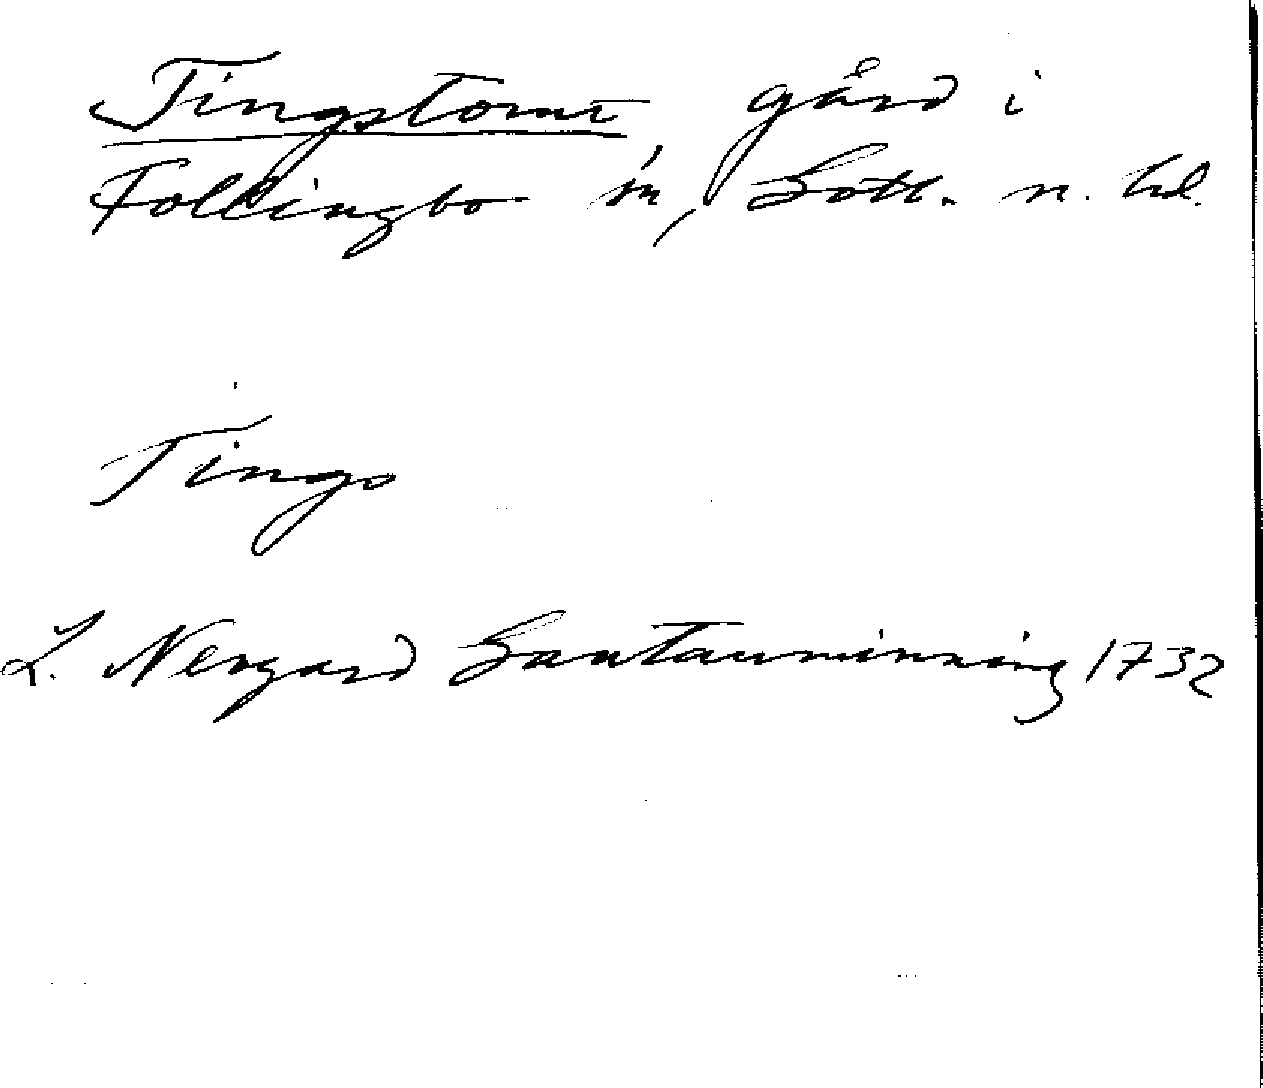 Tingstome gård i
Follingbo sn, Gotl. n. hd.
Tings
L. Nergard Santauminning 1732